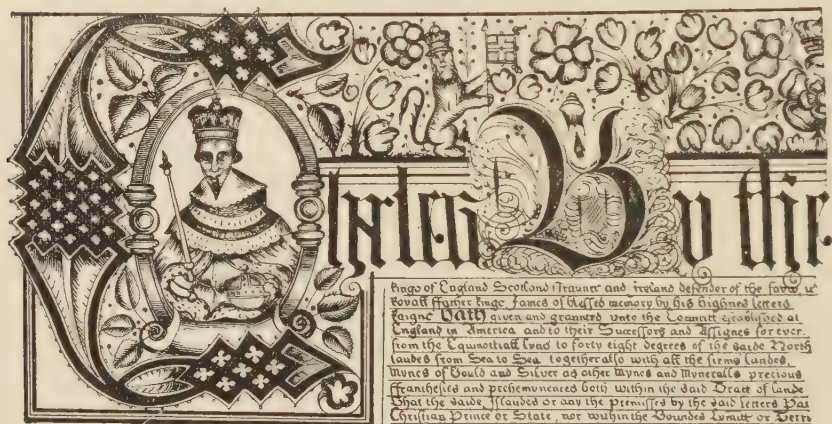 Charles By the
kinge of England Scotland ffraunce and ireland defendor of the fayth &c
Royall ffather kinge James of blessed memory by his highnes letters
Raigne hath given and graunted unto the Councell established at
England in America and to their Successors and Assignes for ever.
from the Equinoctiall lyne to forty eight degrees of the saide North
landes from Sea to Sea together also with all the firme landes,
Mynes of Gould and Silver as other Mynes and Myneralls precious
ffranchesies and prehemynences both within the said Tract of lande
That the saide, Islandes or any the Premisses by the said letters Pat
Christian Prince or State, nor within the Boundes Lymitt or Terri